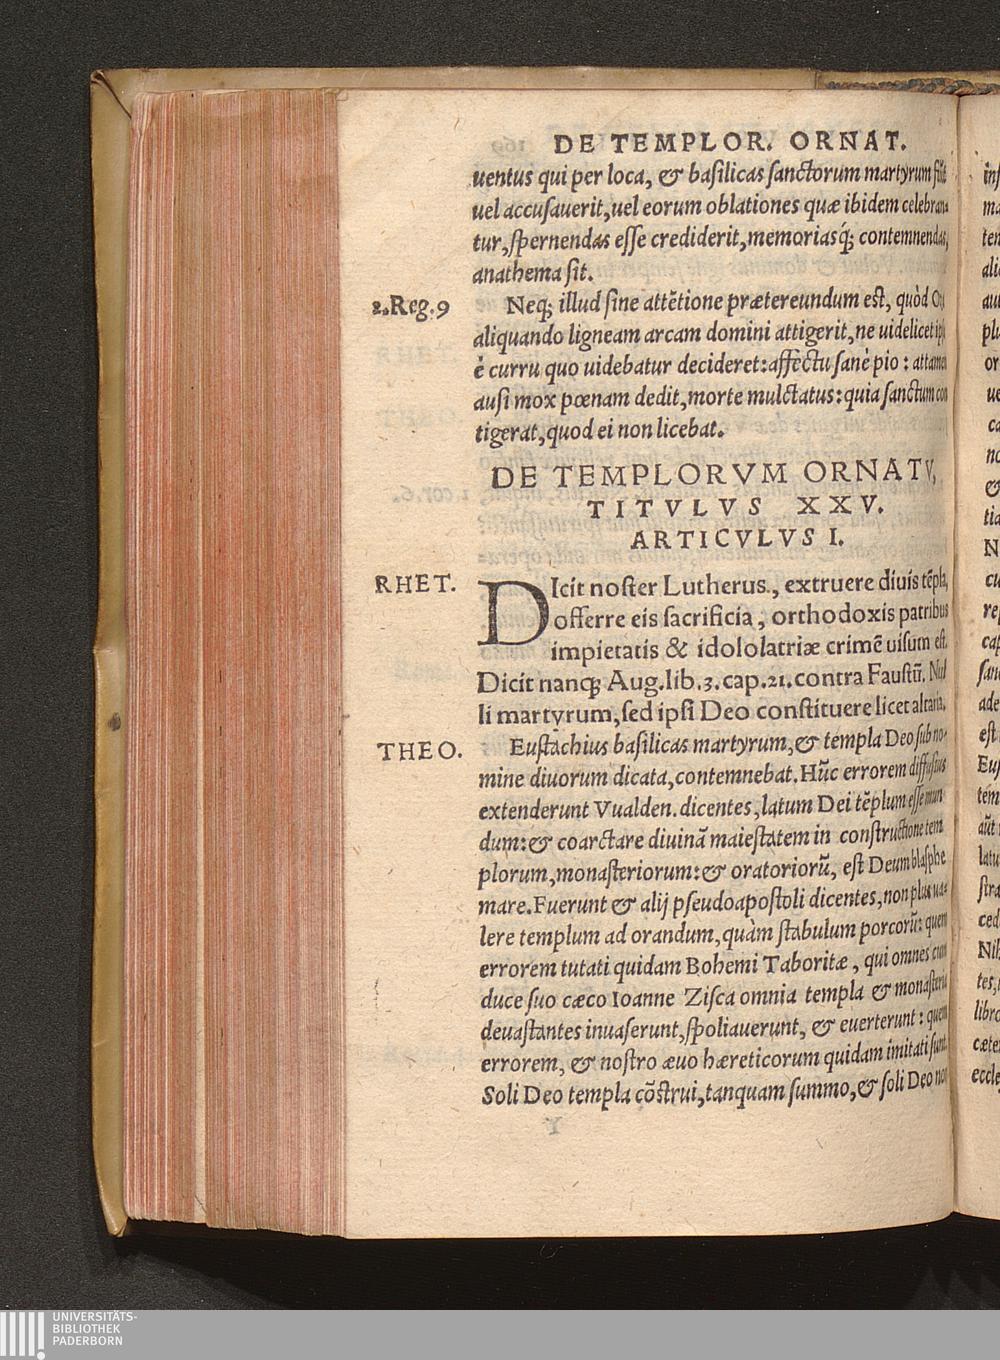 DE TEMPLOR. ORNAT.
uentus qui per loca, & basilicas sanctorum martyrum
uel accusauerit, uel eorum oblationes quæ ibidem celebran=
tur, spernendas esse crediderit, memoriasq́; contemnendas,
anathema sit.
2. Reg. 9 Neq; illud sine attẽtione prætereundum est, quòd
aliquando ligneam arcam domini attigerit, ne uidelicet
è curru quo uidebatur decideret: affectu sanè pio: attamen
ausi mox pœnam dedit, morte mulctatus: quia sanctum con
tigerat, quod ei non licebat.
DE TEMPLORVM ORNATV,
TITVLVS XXV.
ARTICVLVS I.
RHET. DIcit noster Lutherus, extruere diuis tẽpla,
offerre eis sacrificia, orthodoxis patribus
impietatis & idololatriæ crimẽ uisum est.
Dicit nanq; Aug. lib. 3. cap. 21. contra Faustũ. Nul
li martyrum, sed ipsi Deo constituere licet altaria.
THEO. Eustachius basilicas martyrum, & templa Deo sub no-
mine diuorum dicata, contemnebat. Hũc errorem diffusius
extenderunt Vualden. dicentes, latum Dei tẽplum esse mun
dum: & coarctare diuinã maiestatem in constructione tem
plorum, monasteriorum: & oratoriorũ, est Deum blasphe
mare. Fuerunt & alij pseudoapostoli dicentes, non plus ua=
lere templum ad orandum, quàm stabulum porcorũ: quem
errorem tutati quidam Bohemi Taboritæ, qui omnes cum
duce suo cæco Ioanne Zisca omnia templa & monasteria
deuastantes inuaserunt, spoliauerunt, & euerterunt: quem
errorem, & nostro æuo hæreticorum quidam imitati sunt.
Soli Deo templa cõstrui, tanquam summo, & soli Deo non
UNIVERSITÄTS-
BIBLIOTHEK
PADERBORN